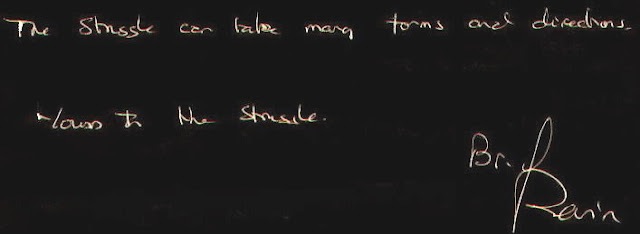 The Struggle can take many forms and directions.
Yours in the struggle.
Br. Kevin